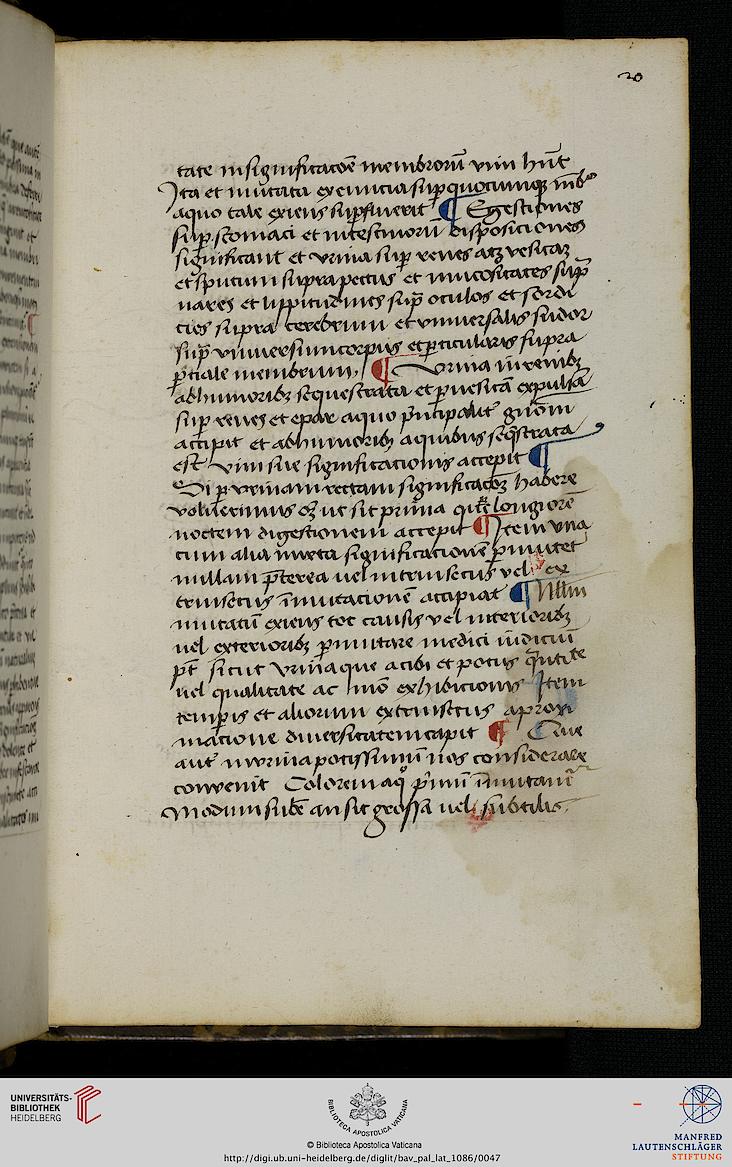 20
tate in significatōe membrorū vim hn̄t
Ita et mutata exeuncia sup quocumq mb°
a quo tale exiens supfluerit ¶ Egestiones
sup stomaci et intestinorū disposiciones
significant et vrina sup renes atq vesicaʒ
et sputum supra pectus et mucositates sup̄
nares et lippitudines sup̄ oculos et sordi
cies supra cerebrum et vniversalis sudor
sup̄ vniversum corpus et pticularis supra
pciale membrum. ¶ Vrina in renibʒ
ab humoribʒ sequestrata et p vesicā expulsa
sup renes et epar a quo pncipalit
accipit et ab humoribʒ a quibus seqstrata
est vim sue significationis accepit ¶
Si p vrinam rectam significatōeʒ habere
voluerimus oʒ ut sit prima longiorē
noctem digestionem accepit ¶ Item vna
cum alia iuncta significationē pmutet
nullam pterea uel intrinsecus vel ex
trinsecus īmutacionē accipiat ¶ Nam
mutatū exiens tot causis vel interioribʒ
uel exterioribʒ pmutare medici iudiciū
pt̄ sicut vrina que a cibi et potus qntitate
uel qualitate ac mō exhibicionis Item
temperis et aliorum extrinsecus aproxi
macione diversitatem capit ¶ Que
aut in vrina potissimum nos considerare
convenit Colorem aq° pmū īmutant
Modum sube an sit grossa uel subtilis.
UNIVERSITÄTS-
BIBLIOTHEK
HEIDELBERG
BIBLIOTHECA APOSTOLICA VATICANA
© Biblioteca Apostolica Vaticana
http://digi.ub.uni-heidelberg.de/diglit/bav_pal_lat_1086/0047
MANFRED
LAUTENSCHLÄGER
STIFTUNG